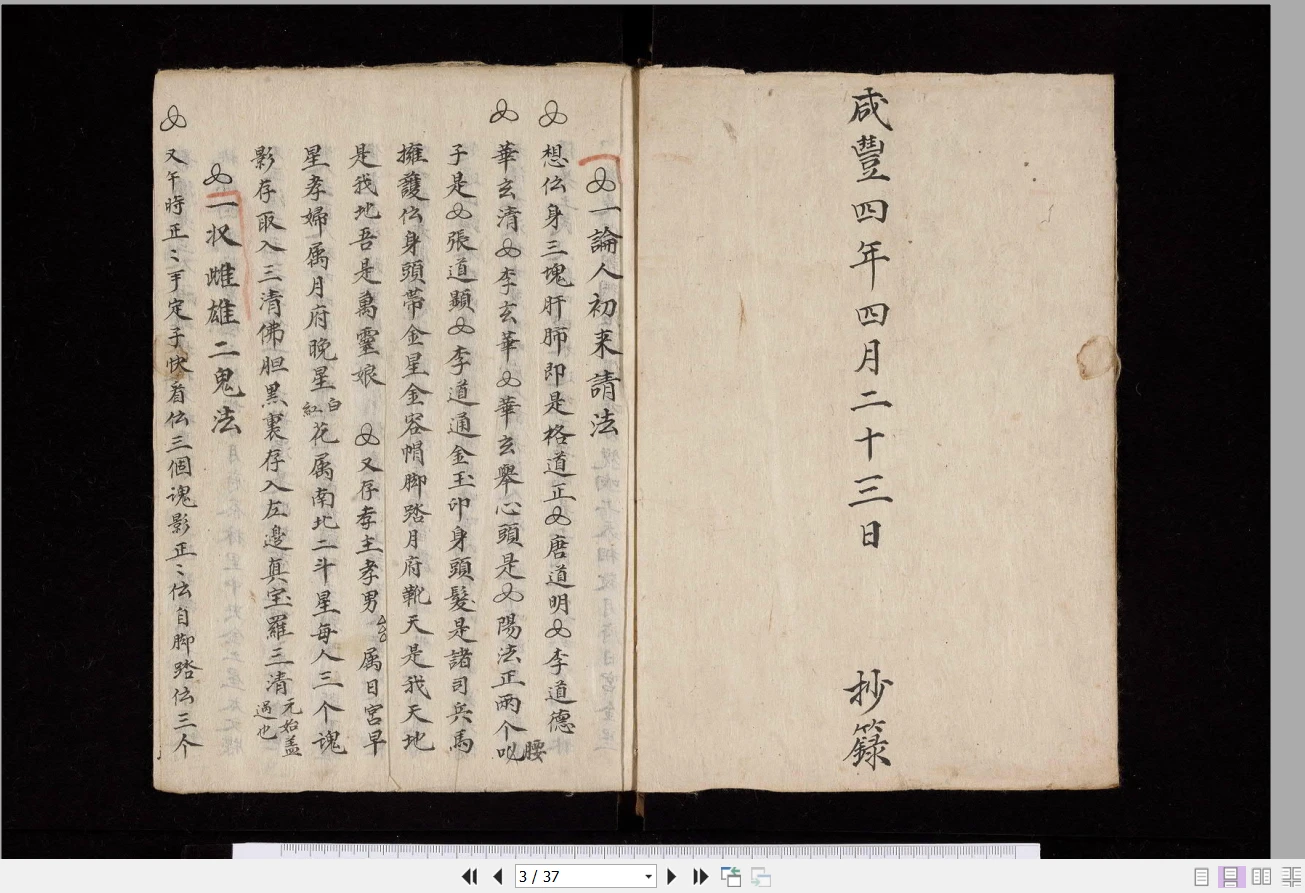 咸豐四年四月二十三日 抄籙
一論人初来請法
想伝身三塊肝肺即是格道正 唐道明 李道德
華玄清 李玄華 華玄舉心頭是 陽法正兩个 腰
子是 張道顯 李道通金玉印身頭髮是諸司兵馬
擁護伝身頭帶金星金容帽脚踏月府靴天是我天地
是我地吾是萬靈娘 又存孝主孝男 属日宮早
星孝婦属月府晚星 白紅 花属南北二斗星每人三个魂
影存取入三清佛胆黑裏存入左邊真宝羅三清 元始盖過也
一収雌雄二鬼法
又午時正〻手定手快看伝三個魂影正〻伝自脚踏伝三个
3 / 37